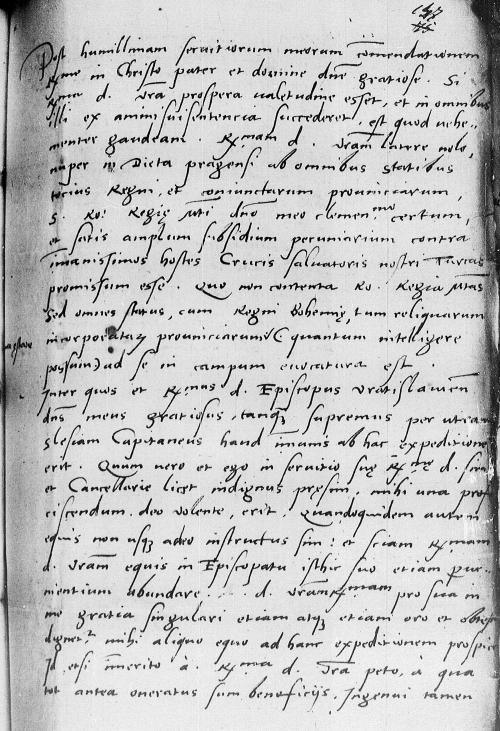 Post humillimam seruitiorum meorum cõmendationem
Rme in Christo pater et domine dne gratiose. Si
Rme d. Vra prospera ualetudine esset, et in omnibus
Illi ex animi sui sentencia succederet, est quod uehe,,
menter gaudeam. Rmam d. Vram latere nolo,
nuper in Dieta pragensi ab omnibus statibus
tocius Regni, et coniunctarum prouinciarum,
S. Ro: Regię Mti dno meo clemenmo certum,
et satis amplum subsidium pecuniarium contra
immanissimos hostes Crucis saluatoris nostri Turcas
promissum esse. Quo non contenta Ro. Regia Mtas
Sed omnes status, cum Regni Bohemię, tum reliquarum
incorporatarum prouinciarum (quantum intelligere
possum) ad se in campum euocatura est.
Inter quos et Rmus d. Episcopus Vratislauien
dns meus gratiosus, tanq supremus per utramq
Slesiam Capitaneus haud immunis ab hac expeditione
erit. Quum uero et ego in seruitio suę Rme d. sim
et Cancellarie licet indignus pręsim, mihi una pro
ciscendum, deo uolente, erit. Quandoquidem autem
equis non usq adeo instructus sim: et sciam Rmam
d. Vram equis in Episcopatu isthic suo etiam
mentium abundare. d. Vram Rmam pro sua in
me gratia singulari etiam atq etiam oro et
dignetur mihi aliquo equo ad hanc expeditionem
Id etsi immerito a Rma d. Vra peto, a qua
tot antea oneratus sum beneficijs. Ingenui tamen